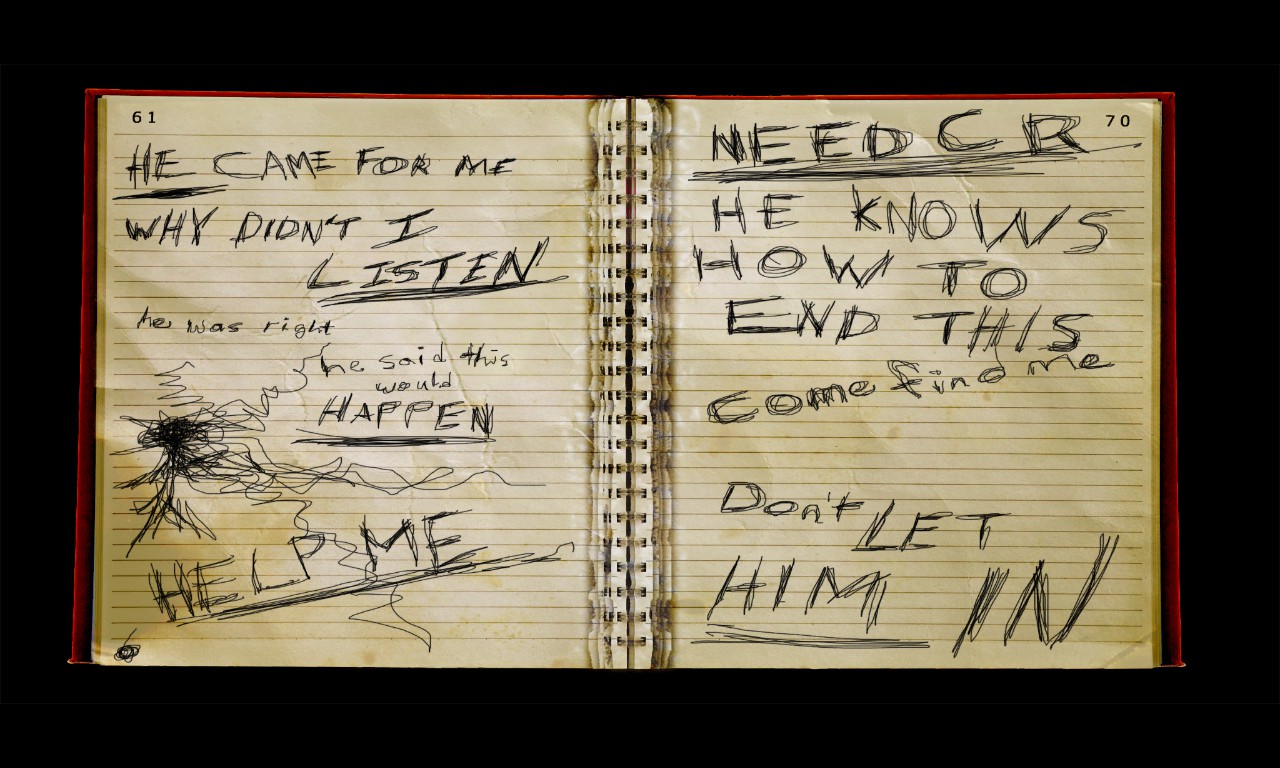 61
HE CAME FOR ME
WHY DIDN'T I
LISTEN
he was right
he said this
would
HAPPEN
HELP ME
70
NEED CR
HE KNOWS
HOW TO
END THIS
come find me
Don't LET
HIM IN